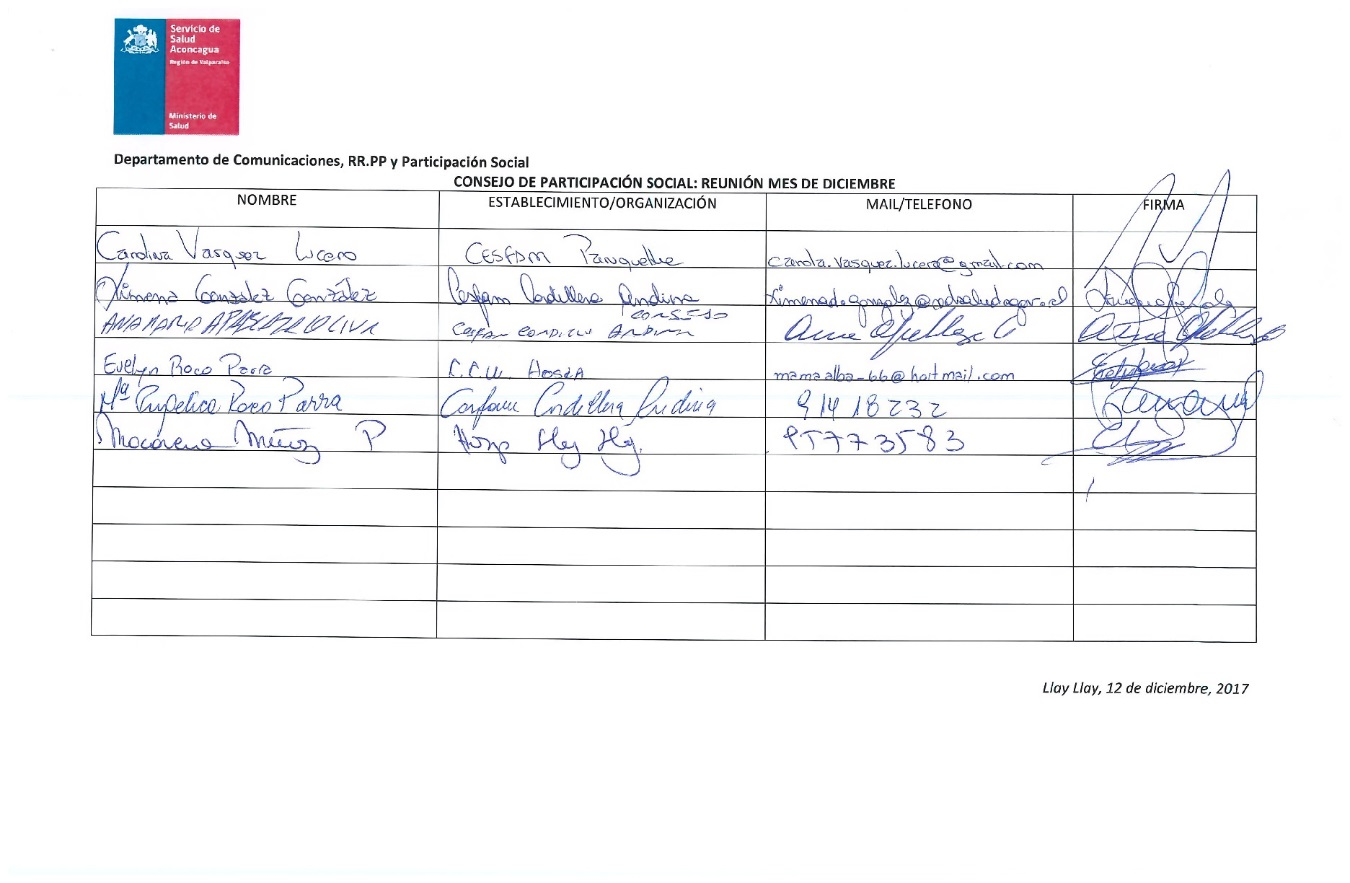 Servicio de
Salud
Aconcagua
Región de Valparaíso
Ministerio de
Salud
Departamento de Comunicaciones, RR.PP y Participación Social
CONSEJO DE PARTICIPACIÓN SOCIAL: REUNIÓN MES DE DICIEMBRE
NOMBRE ESTABLECIMIENTO/ORGANIZACIÓN MAIL/TELEFONO FIRMA
Carolina Vasquez Lucero CESFAM Panquehue carola.vasquez.lucero@gmail.com
Ximena González González Cesfam Cordillera Andina
ANA MARIA OLIVA CONSEJO
Evelyn Roco Parra mamaalba-66@hoitmail.com
Mª Angelica Roco Parra Cesfam Cordillera Andina 91418232
Macarena Muñoz P Hosp Llay Llay. 95773583
Llay Llay, 12 de diciembre, 2017